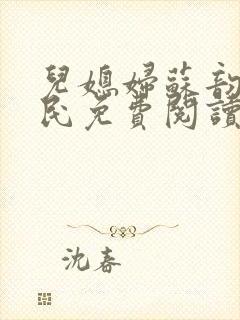 兒媳婦蘇韵
民免費閱讀
沈春